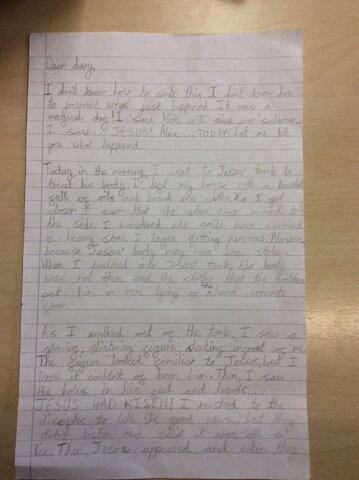 Dear diary,
I don't know how to write this. I don't know how
to journal what just happened. It was a
magical day! I saw him... I saw our saviour...
I saw.... JESUS! Alive... TODAY! Let me tell
you what happened.
Today, in the morning, I went to Jesus' tomb to
treat his body. I left my house with a basket
full of oils and brand new cloths. As I got
closer I saw that the stone was moved to
the side. I wondered who could have carried
a heavy stone. I began getting nervous. Nervous,
because Jesus' body may have been stolen.
When I walked into Jesus' tomb, his body
was not there and the clothes that the soldiers
put him in were lying on the hard concrete
floor.
As I walked out of the tomb, I saw a
glowing, glistering figure, standing infront of me.
The figure looked familiar to Jesus, but I
knew it couldn't of been him. Then, I saw
the holes in his feet and hands....
JESUS HAD RISEN! I rushed to the
disciples to tell the good news, but they
didn't listen and said it was all a
lie. Then, Jesus appeared and when they